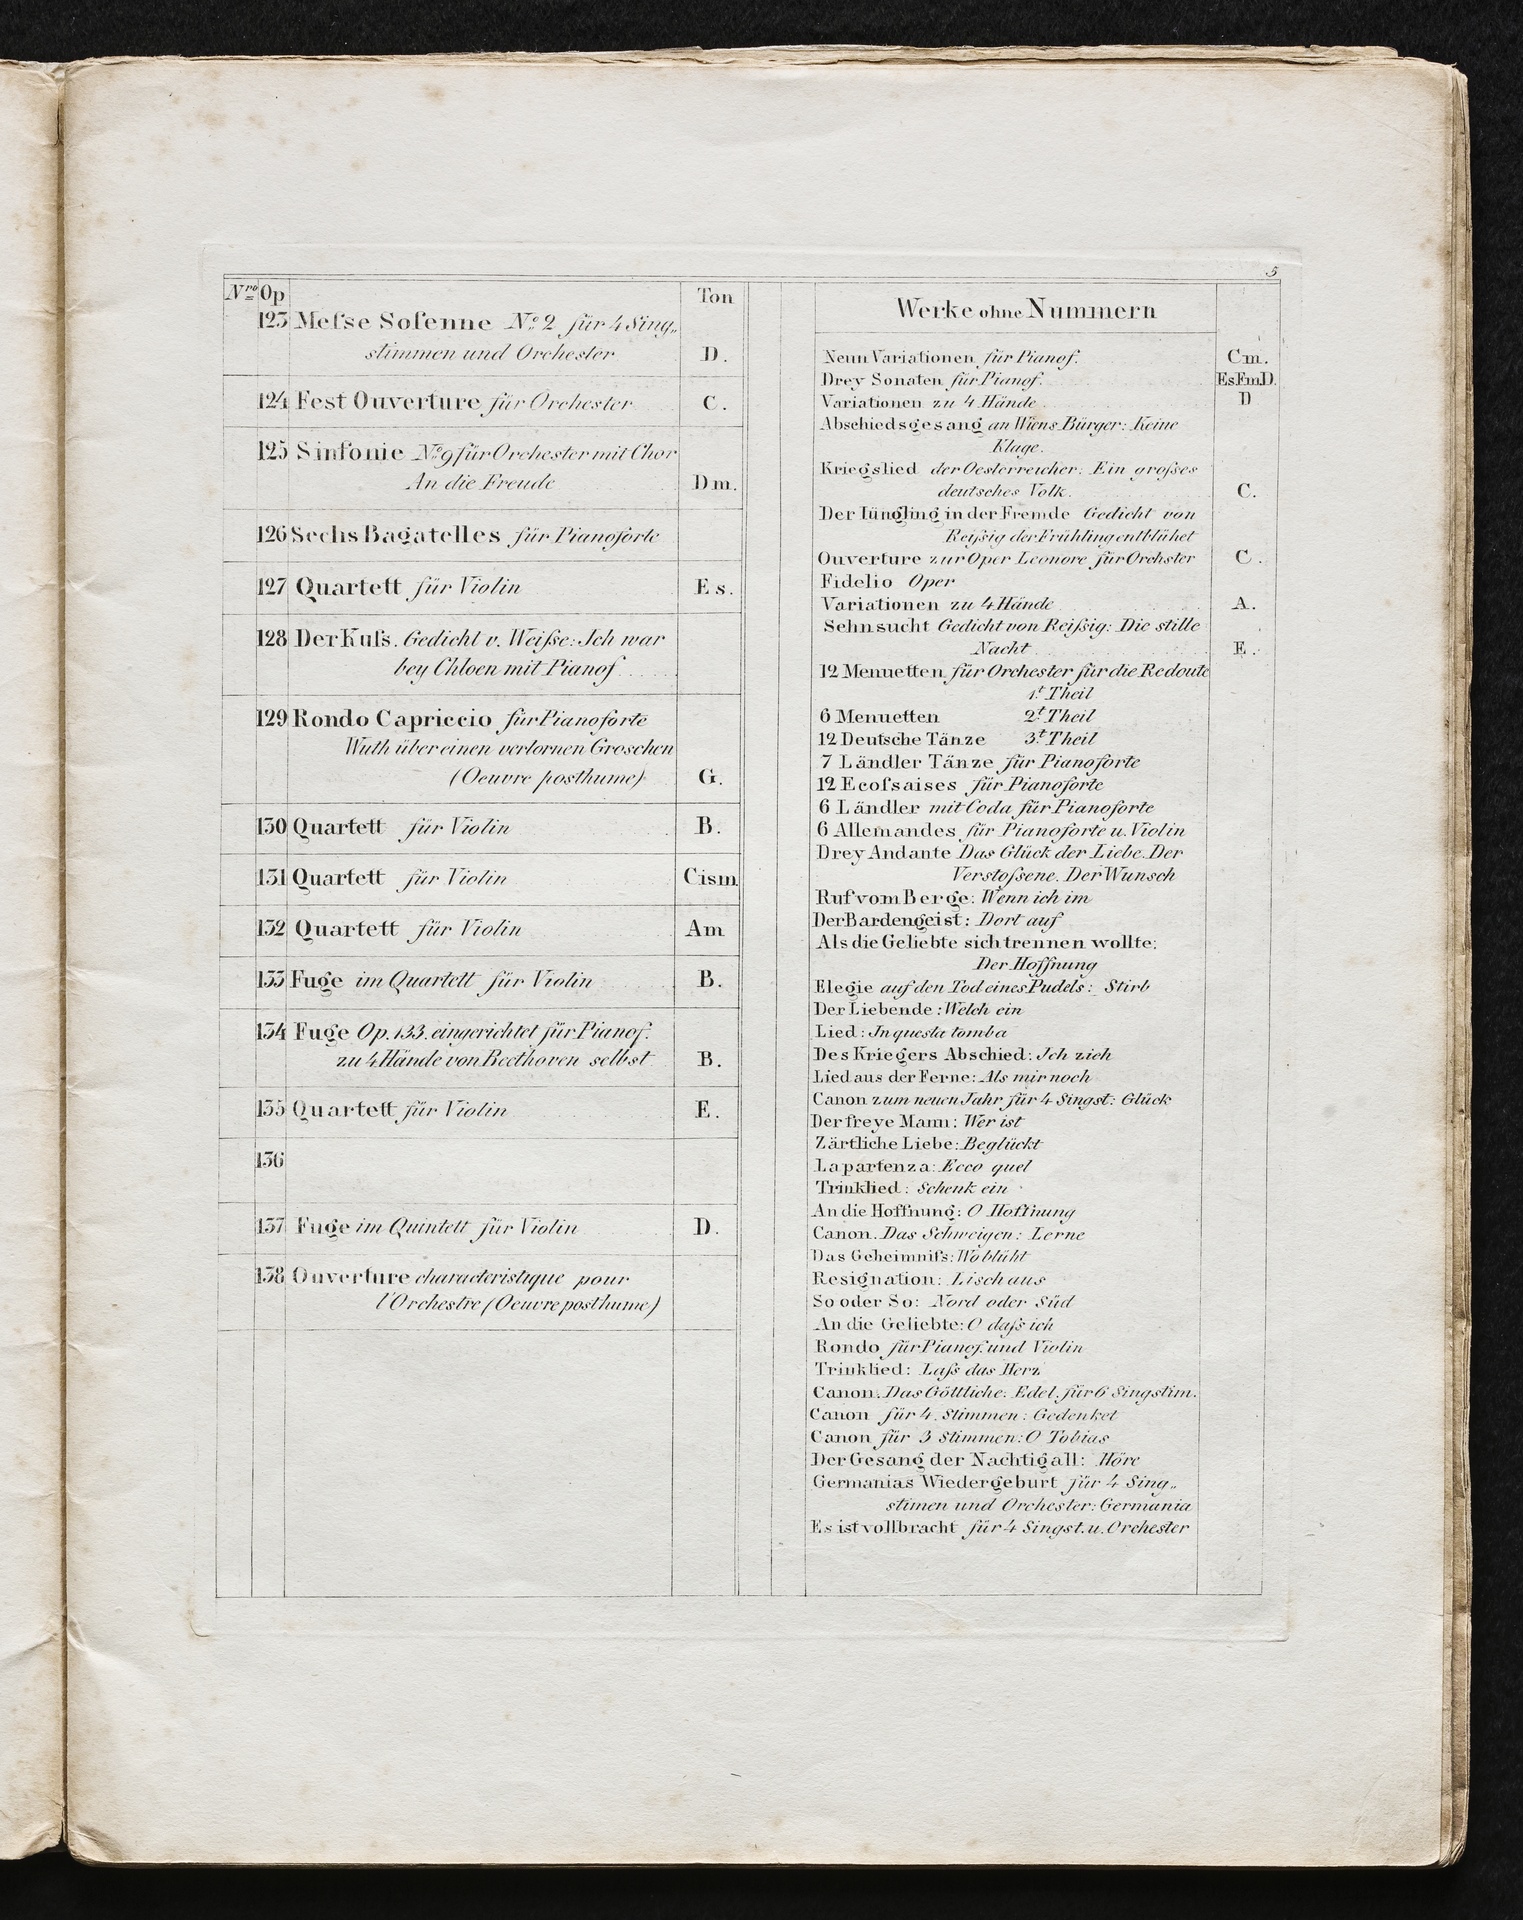 5
Nro Op Ton
123 Meſse Solenne No 2 für 4 Sing„
stimmen und Orchester D.
124 Fest Ouverture für Orchester C.
125 Sinfonie No 9 für Orchester mit Chor
An die Freude Dm.
126 Sechs Bagatelles für Pianoforte
127 Quartett für Violin Es.
128 Der Kuſs. Gedicht v. Weiſse: Ich war
bey Chloen mit Pianof.
129 Rondo Capriccio für Pianoforte
Wuth über einen verlornen Groschen
(Oeuvre posthume) G.
130 Quartett für Violin B.
131 Quartett für Violin Cism
132 Quartett für Violin Am
133 Fuge im Quartett für Violin B.
134 Fuge Op. 133. eingerichtet für Pianof.
zu 4 Hände von Beethoven selbst B.
135 Quartett für Violin E.
136
137 Fuge im Quintett für Violin D.
138 Ouverture characteristique pour
l'Orchestre (Oeuvre posthume)
Werke ohne Nummern
Neun Variationen für Pianof. Cm.
Drey Sonaten für Pianof. Es Fm D.
Variationen zu 4 Hände D
Abschiedsgesang an Wiens Bürger: Keine
Klage.
Kriegslied der Oesterreicher: Ein groſses
deutsches Volk. C.
Der Iüngling in der Fremde Gedicht von
Reiſsig der Frühling entblühet
Ouverture zur Oper Leonore für Orchster C.
Fidelio Oper
Variationen zu 4 Hände A.
Sehnsucht Gedicht von Reiſsig: Die stille
Nacht E.
12 Menuetten für Orchester für die Redoute
1t. Theil
6 Menuetten 2t. Theil
12 Deutsche Tänze 3t. Theil
7 Ländler Tänze für Pianoforte
12 Ecoſsaises für Pianoforte
6 Ländler mit Coda für Pianoforte
6 Allemandes für Pianoforte u. Violin
Drey Andante Das Glück der Liebe. Der
Verstoſsene. Der Wunsch
Ruf vom Berge: Wenn ich im
Der Bardengeist: Dort auf
Als die Geliebte sich trennen wollte:
Der Hoffnung
Elegie auf den Tod eines Pudels: Stirb
Der Liebende: Welch ein
Lied: In questa tomba
Des Kriegers Abschied: Ich zieh
Lied aus der Ferne: Als mir noch
Canon zum neuen Jahr für 4 Singst: Glück
Der freye Mann: Wer ist
Zärtliche Liebe: Beglückt
La partenza: Ecco quel
Trinklied: Schenk ein
An die Hoffnung: O Hoffnung
Canon. Das Schweigen: Lerne
Das Geheimniſs: Wo blüht
Resignation: Lisch aus
So oder So: Nord oder Süd
An die Geliebte: O daſs ich
Rondo für Pianof. und Violin
Trinklied: Laſs das Herz
Canon: Das Göttliche: Edel. für 6 Singstim.
Canon für 4. Stimmen: Gedenket
Canon für 3 Stimmen: O Tobias
Der Gesang der Nachtigall: Höre
Germanias Wiedergeburt für 4 Sing„
stimen und Orchester: Germania
Es ist vollbracht für 4 Singst. u. Orchester